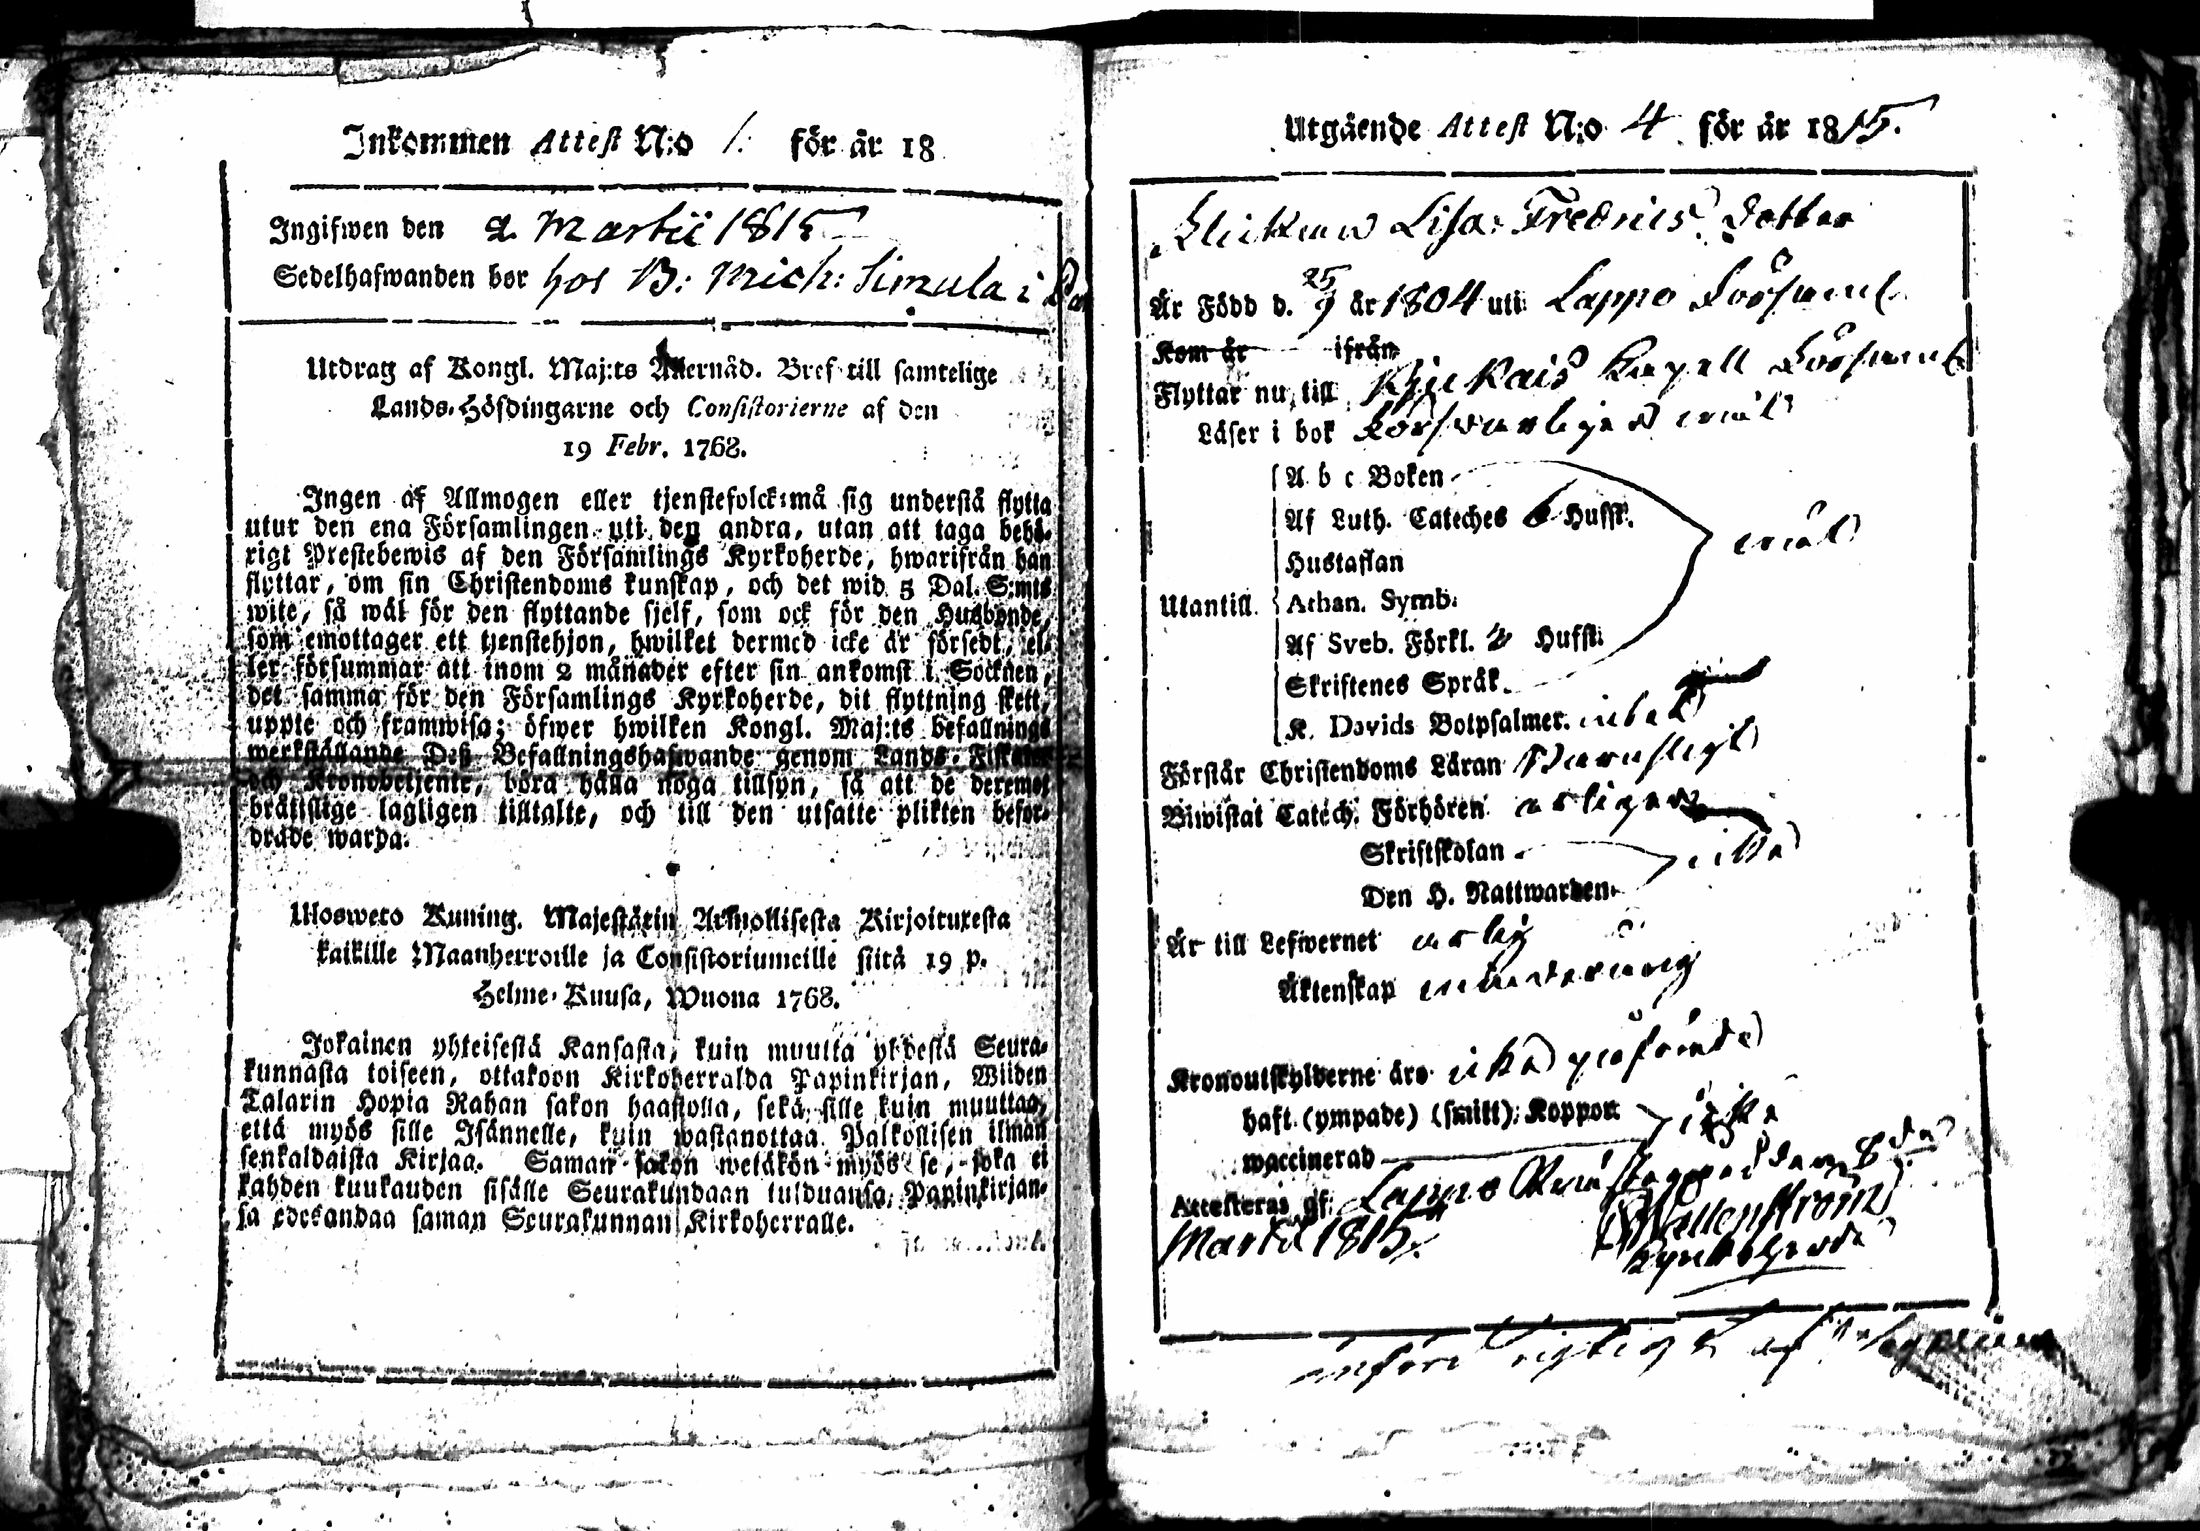 Inkommen Attest N:o 1. för år 18
Ingifwen den 2. Martii 1815
Sedelhafwanden bor hos B: Mich: Simula i
Utdrag af Kongl. Maj:ts Allernåd. Bref till samtelige
Lands-Höfdingarne och Consistorierne af den
19 Febr. 1768.
Ingen af Allmogen eller tjenstefolck må sig understå flytta
utur den ena Församlingen uti den andra, utan att taga behö-
rigt Prestebewis af den Församlings Kyrkoherde, hwarifrån han
flyttar, om sin Christendoms kunskap, och det wid 5 Dal. S:mts
wite, så wäl för den flyttande sjelf, som ock för den Husbonde,
som emottager ett tjenstehjon, hwilket dermed icke är försedt, el-
ler försummar att inom 2 månader efter sin ankomst i Socknen,
det samma för den Församlings Kyrkoherde, dit flyttning skett,
uppte och framwisa; öfwer hwilken Kongl. Maj:ts befallnings
werkställande Deß Befallningshafwande genom Lands-Fiskaler
och Kronobetjente, böra hålla noga tillsyn, så att de deremot
bråtislige lagligen tilltalte, och till den utsatte plikten befor-
drade warda.
Ulosweto Kuning. Majestätin Armollisesta Kirjoituxesta
kaikille Maanherroille ja Consistoriumeille siitä 19 p.
Helme-Kuusa, Wuona 1768.
Jokainen yhteisestä Kansasta, kuin muutta yhdestä Seura-
kunnasta toiseen, ottakoon Kirkoherralda Papinkirjan, Wiiden
Talarin Hopia Rahan sakon haastolla, sekä sille kuin muuttaa,
että myös sille Isännelle, kuin wastanottaa Palkollisen ilman
senkaldaista Kirjaa. Saman sakon wetäkön myös se, joka ei
kahden kuukauden sisälle Seurakundaan tulduansa, Papinkirjan-
sa edesandaa saman Seurakunnan Kirkoherralle.
Utgående Attest N:o 4 för år 1815.
Lisa Fredrics Dotter
Är Född d. 25/9 år 1804 uti Lappo Församl.
Kom år ifrån
Flyttar nu till Kapell Församl
Läser i bok försvarligen
A b c Boken
Af Luth. Cateches 6 Hufst.
Hustaflan
Utantill. Athan. Symb.
Af Sveb. Förkl. Hufst.
Skriftenes Språk.
K. Davids Botpsalmer.
Förstår Christendoms Läran
Biwistat Catech. Förhören årligen
Skriftskolan
Den H. Nattwarden icke
Är till Lefwernet ärlig
Äktenskap minderårig
Kronoutskylderne äro icke påförde
haft (ympade) (smitt) Koppor
waccinerad
Attesteras af Lappo Prästegård den 8da
Martii 1815.
Wallenström
Kyrkoherde